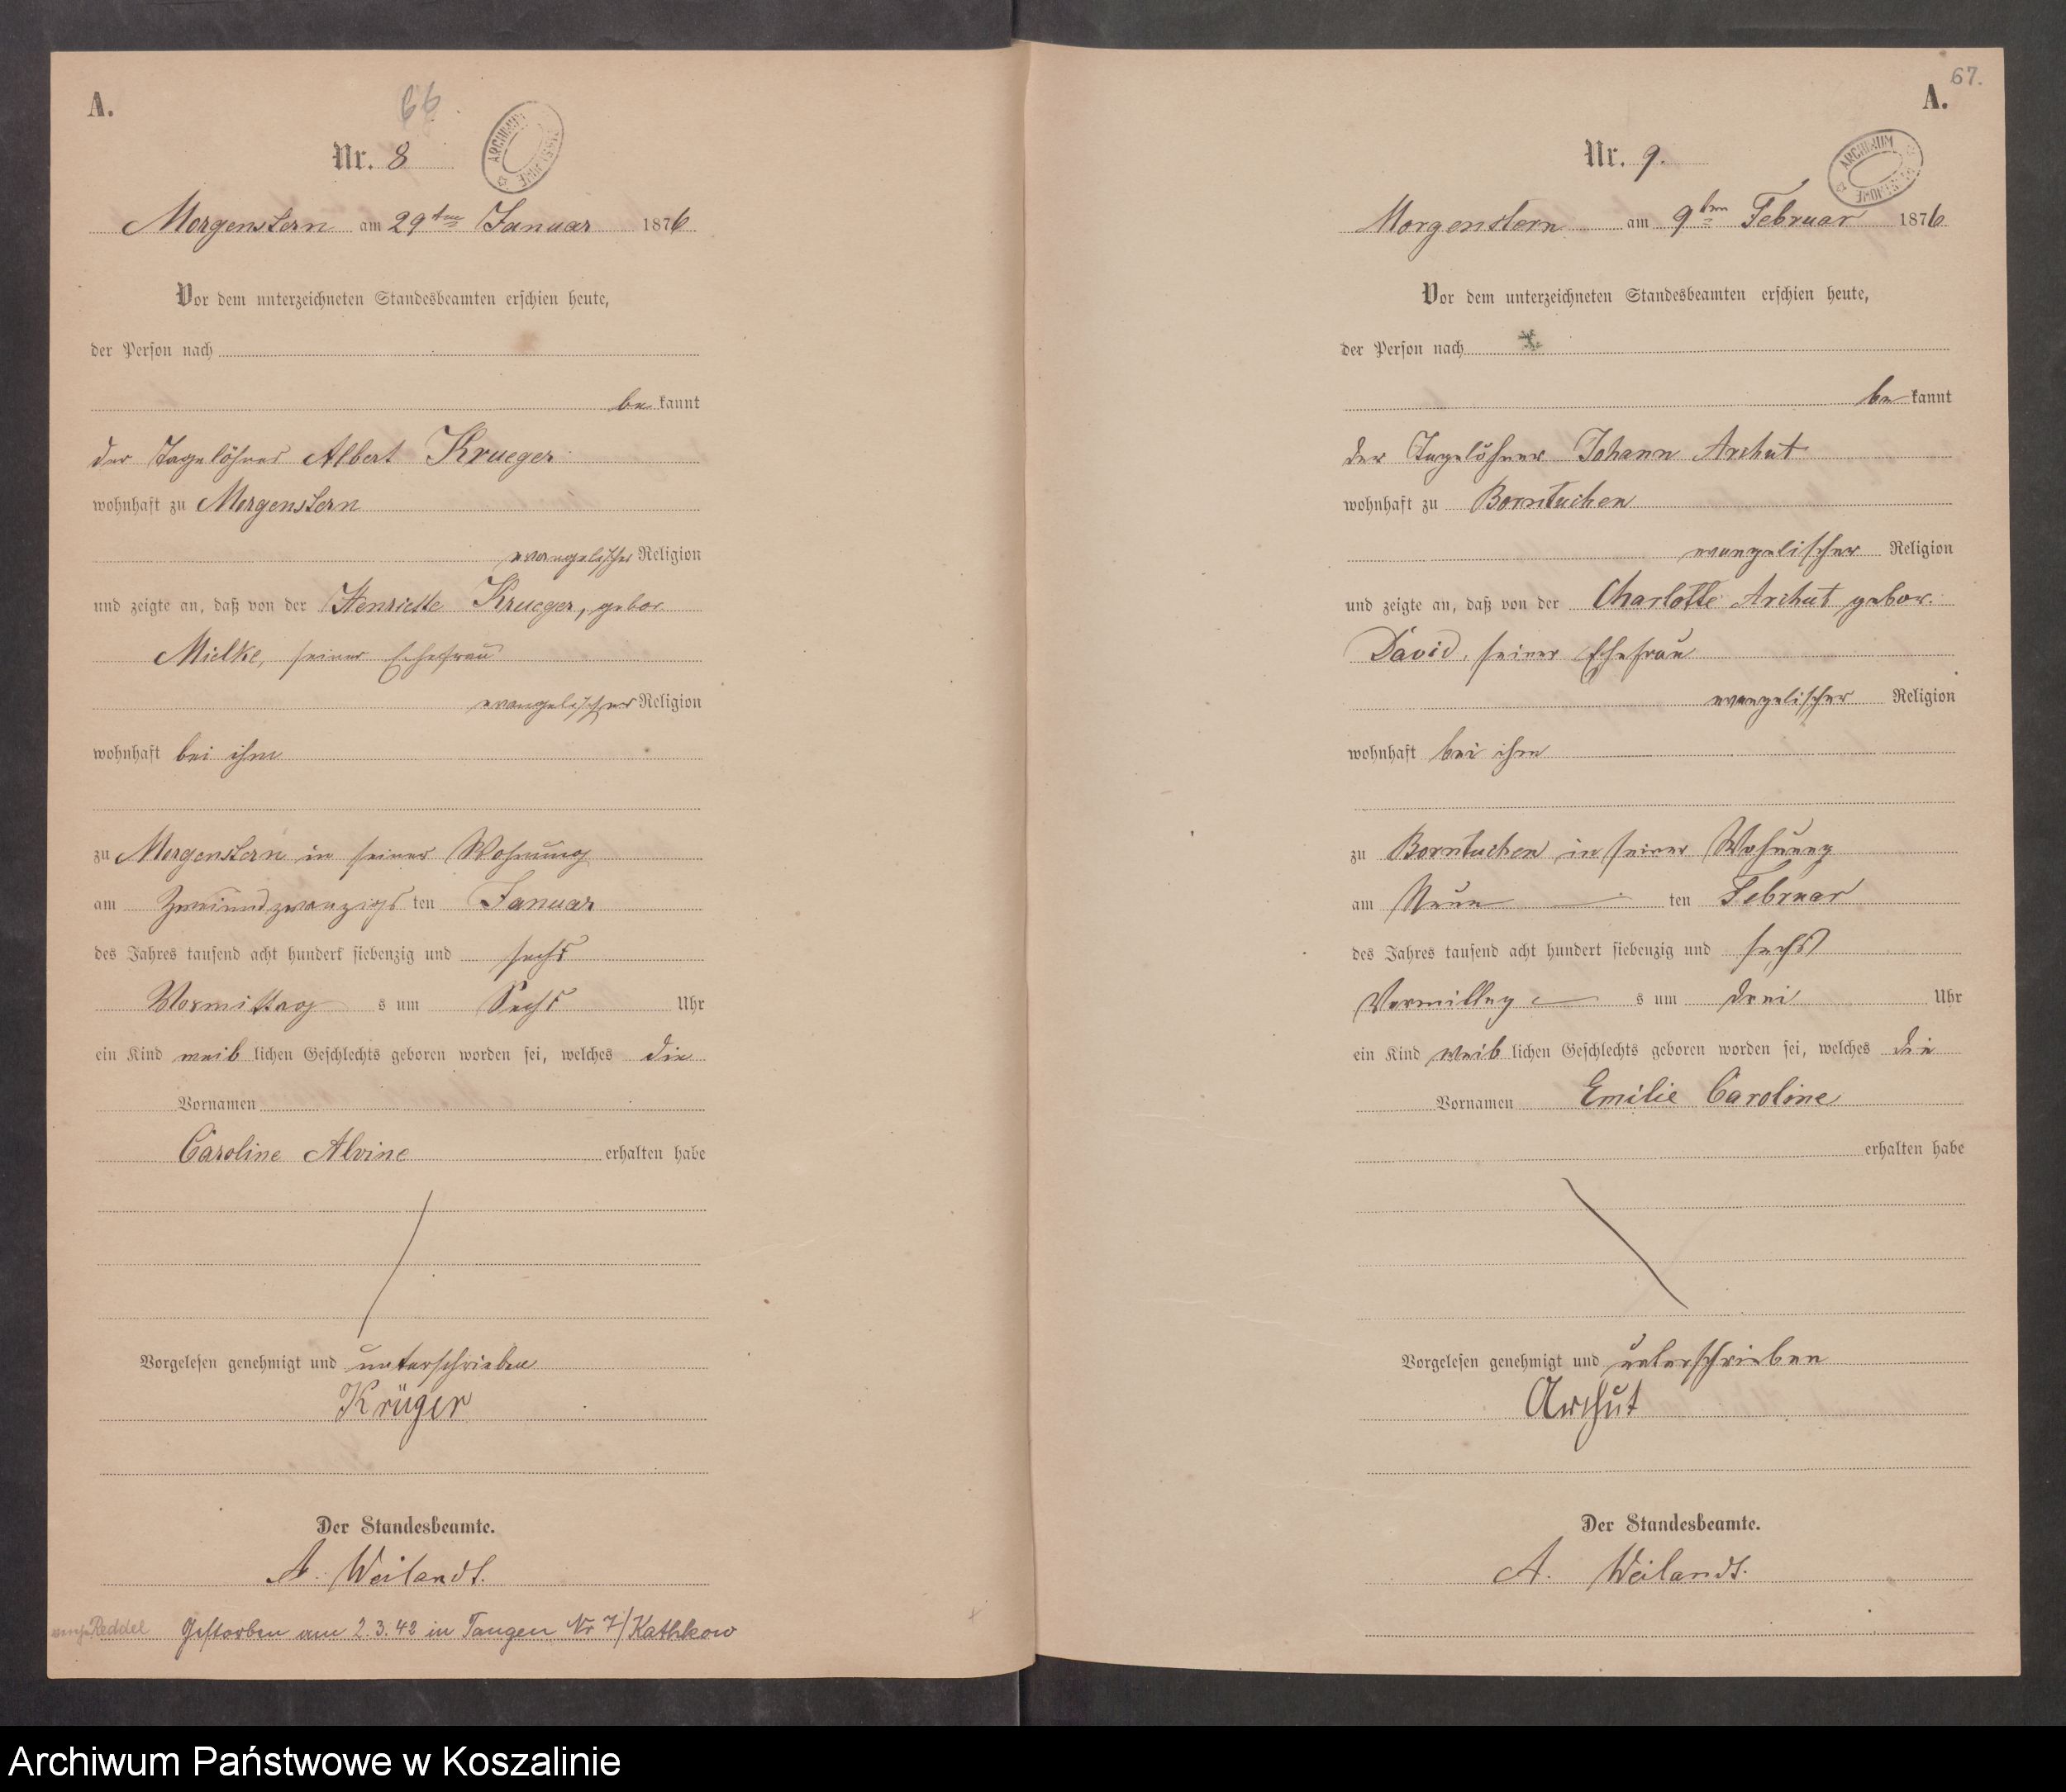 A.
66.
Nr. 8
Morgenstern am 29ten Januar 1876
Vor dem unterzeichneten Standesbeamten erschien heute,
der Person nach
be kannt
der Tagelöhner Albert Krueger
wohnhaft zu Morgenstern
evangelischer Religion
und zeigte an, daß von der Henriette Krueger, gebor
Mielke, seiner Ehefrau
evangelischer Religion
wohnhaft bei ihm
zu Morgenstern in seiner Wohnung
am Zweiundzwanzigs ten Januar
des Jahres tausend acht hundert siebenzig und sechs
Vormittag s um Sechs Uhr
ein Kind weib lichen Geschlechts geboren worden sei, welches die
Vornamen
Caroline Alvine erhalten habe
Vorgelesen genehmigt und unterschrieben
Krüger
Der Standesbeamte.
A. Weilandt.
Reddel Gestorben am 2.3.42 in Tangen Nr 7/Kathkow
67.
A.
Nr. 9.
ARCHIWUM
Morgenstern am 9ten Februar 1876
Vor dem unterzeichneten Standesbeamten erschien heute,
der Person nach
be kannt
der Tagelöhner Johann Archut
wohnhaft zu Borntuchen
evangelischer Religion
und zeigte an, daß von der Charlotte Archut gebor.
David, seiner Ehefrau
evangelischer Religion
wohnhaft bei ihm
zu Borntuchen in seiner Wohnung
am Neun ten Februar
des Jahres tausend acht hundert siebenzig und sechs
Vormittag s um drei Uhr
ein Kind weib lichen Geschlechts geboren worden sei, welches die
Vornamen Emilie Caroline
erhalten habe
Vorgelesen genehmigt und unterschrieben
Archut
Der Standesbeamte.
A. Weilandt.
Archiwum Państwowe w Koszalinie